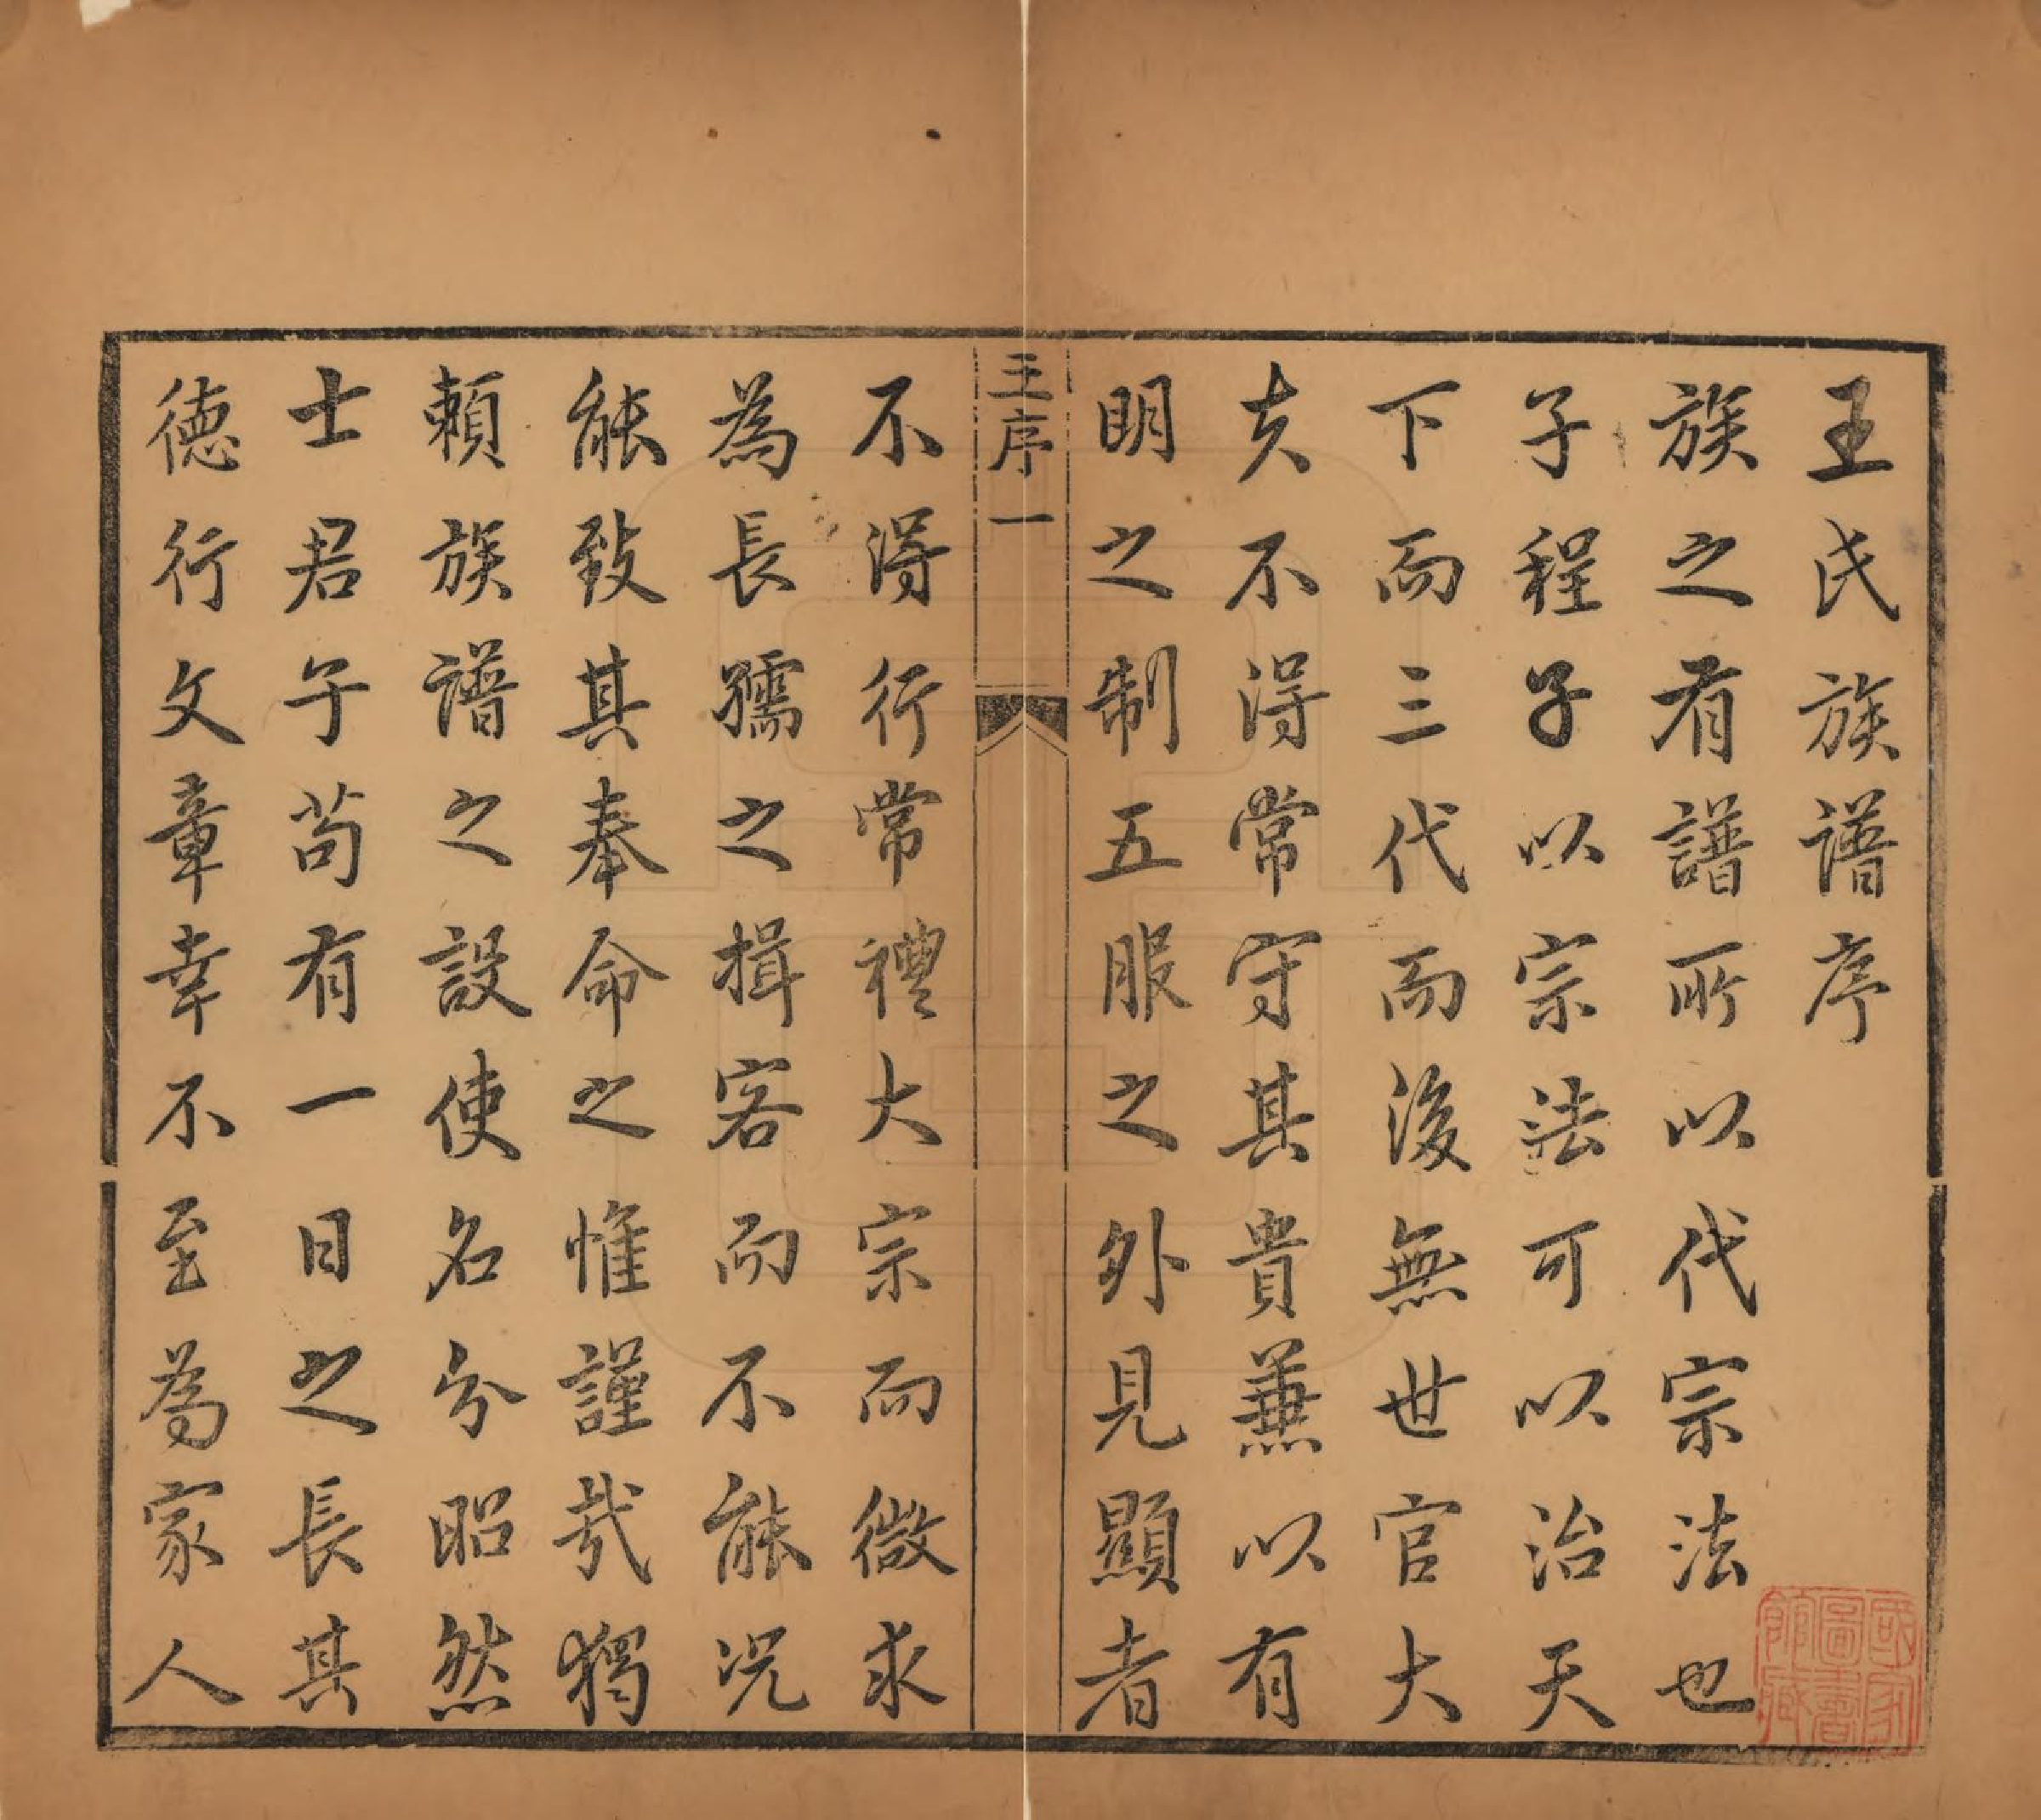 王氏族譜序
族之有譜所以代宗法也
子程子以宗法可以治天
下而三代而後無世官大
夫不得常守其貴兼以有
明之制五服之外見顯者
王序 一
不得行常禮大宗而微求
為長孺之揖客而不能況
能致其奉命之惟謹哉獨
賴族譜之設使名分昭然
士君子苟有一日之長其
德行文章幸不至為家人
國家圖書館藏